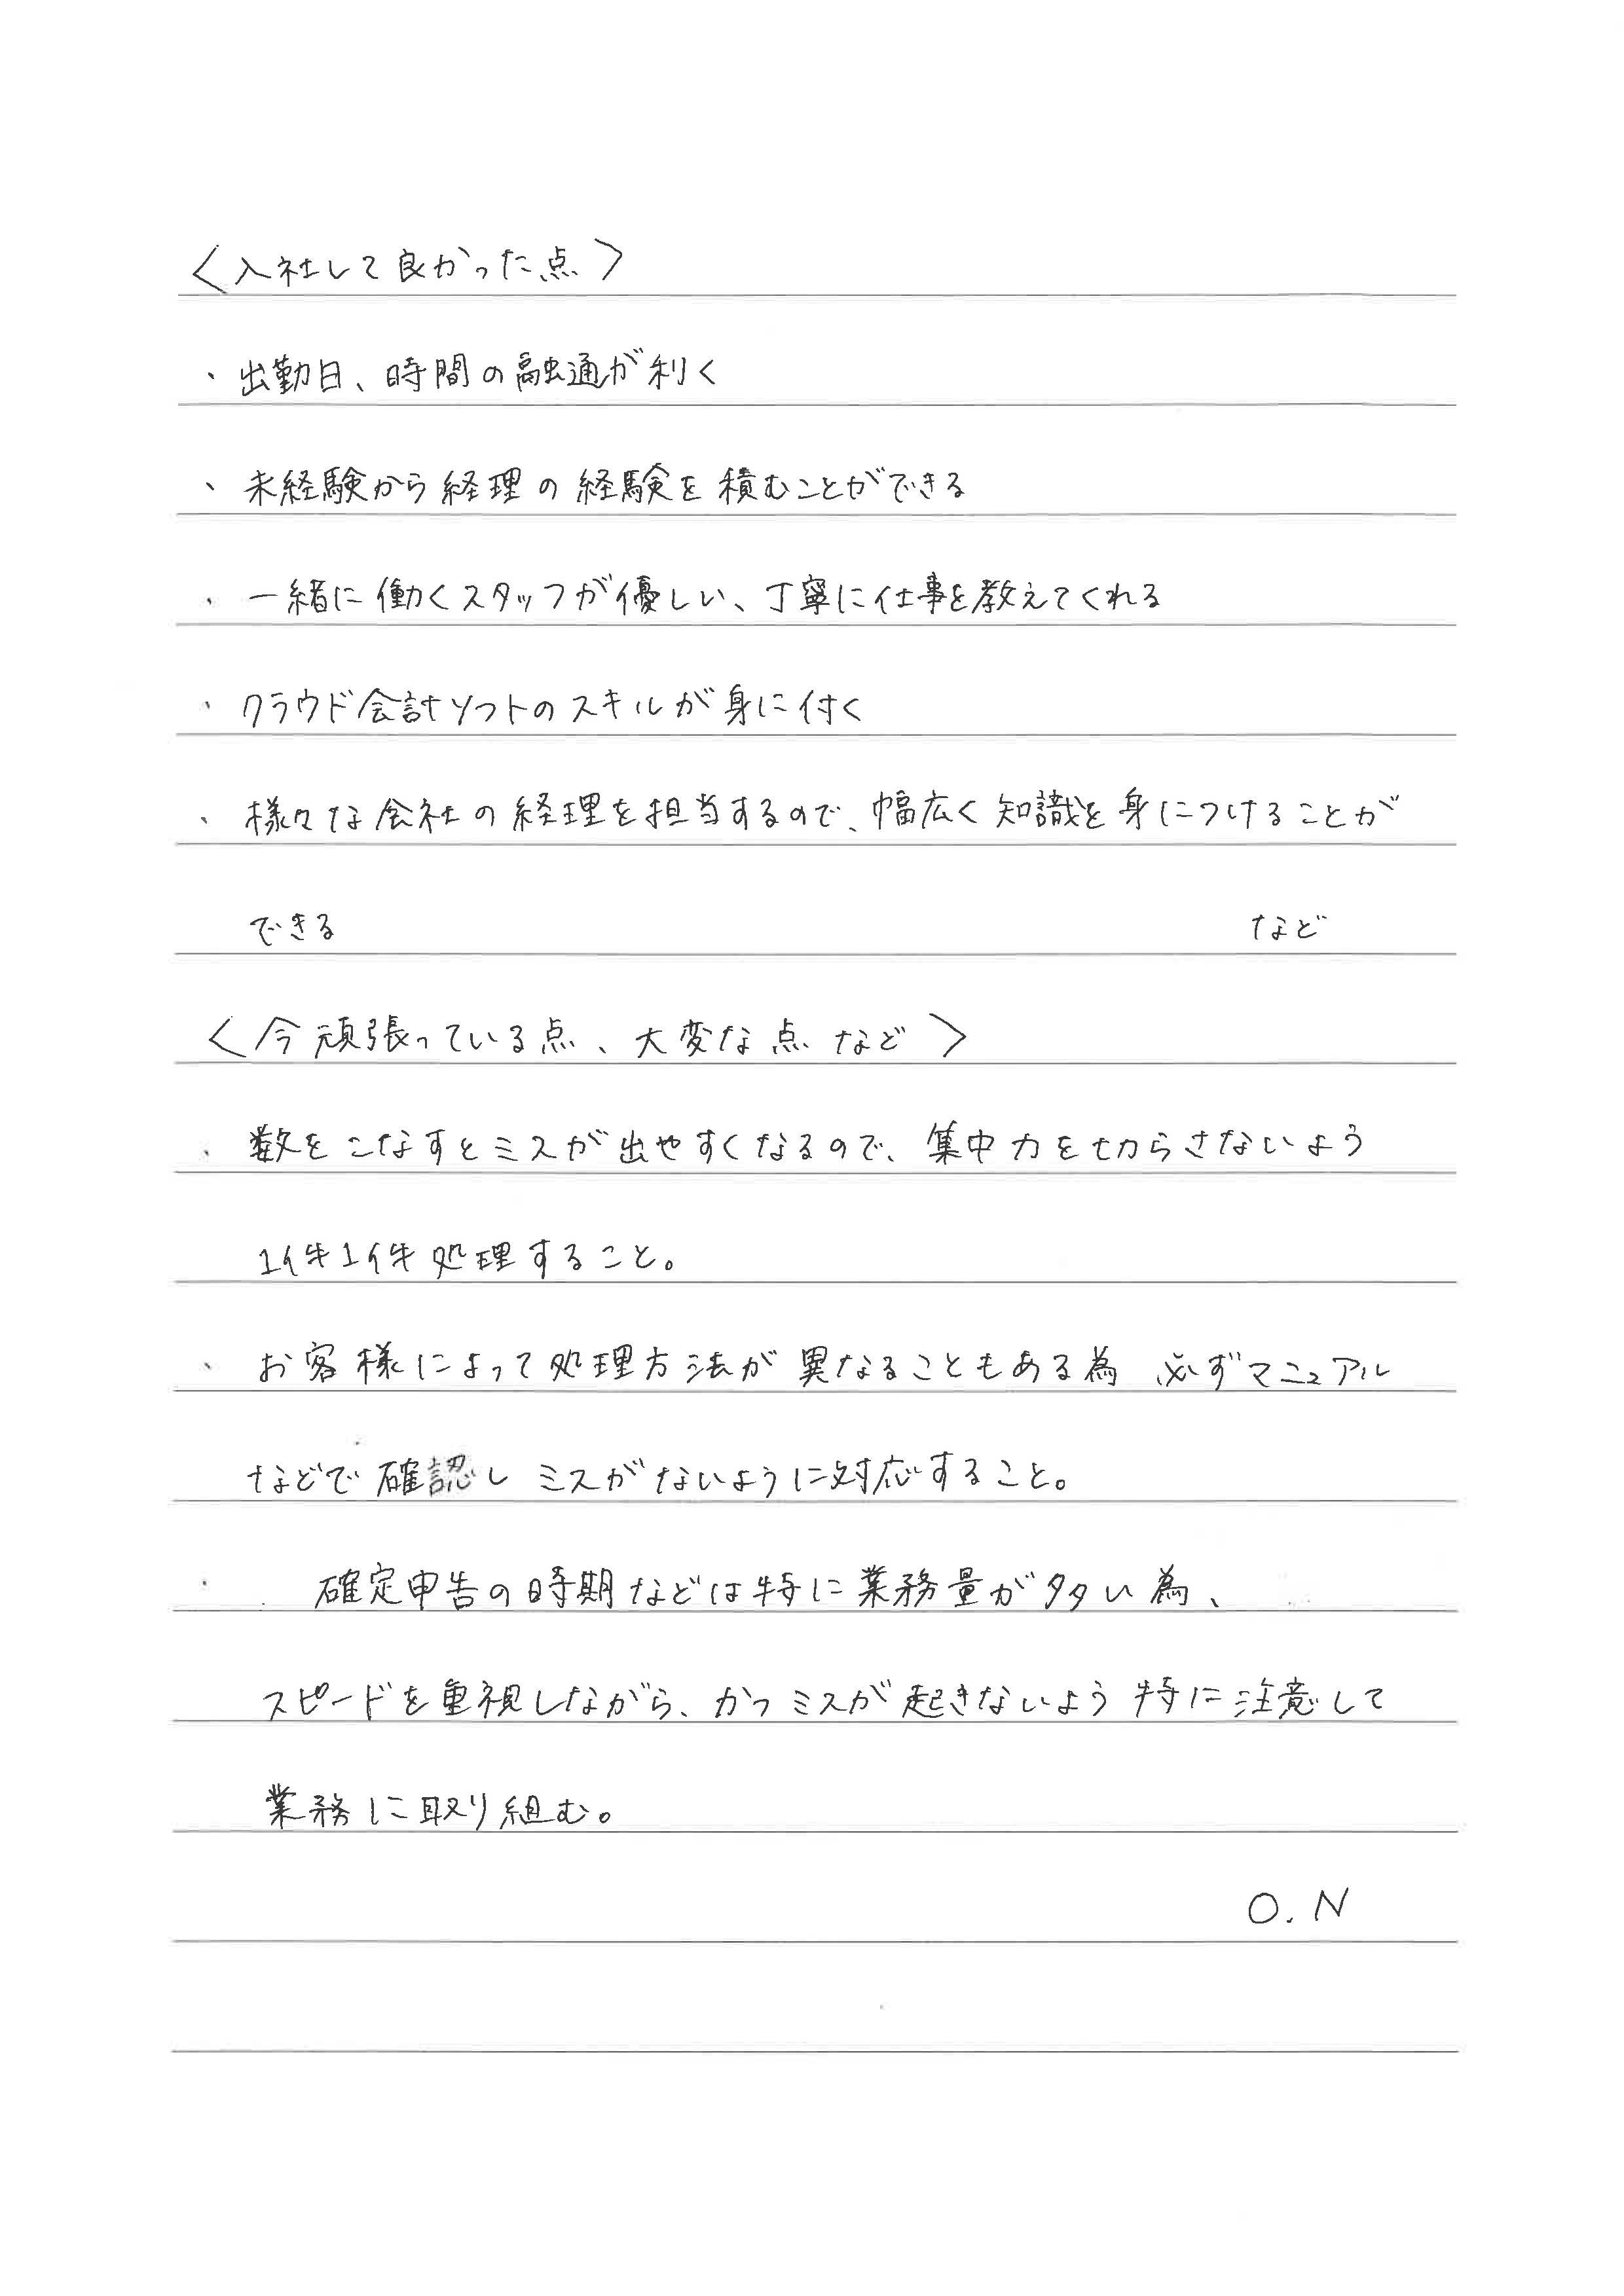 〈入社して良かった点〉
・出勤日、時間の融通が利く
・未経験から経理の経験を積むことができる
・一緒に働くスタッフが優しい、丁寧に仕事を教えてくれる
・クラウド会計ソフトのスキルが身に付く
・様々な会社の経理を担当するので、幅広く知識を身につけることが
できる など
〈今頑張っている点、大変な点 など〉
・数をこなすとミスが出やすくなるので、集中力を切らさないよう
1件1件処理すること。
・お客様によって処理方法が異なることもある為 必ずマニュアル
などで確認し ミスがないように対応すること。
・確定申告の時期などは特に業務量が多い為、
スピードを重視しながら、かつミスが起きないよう特に注意して
業務に取り組む。
O.N